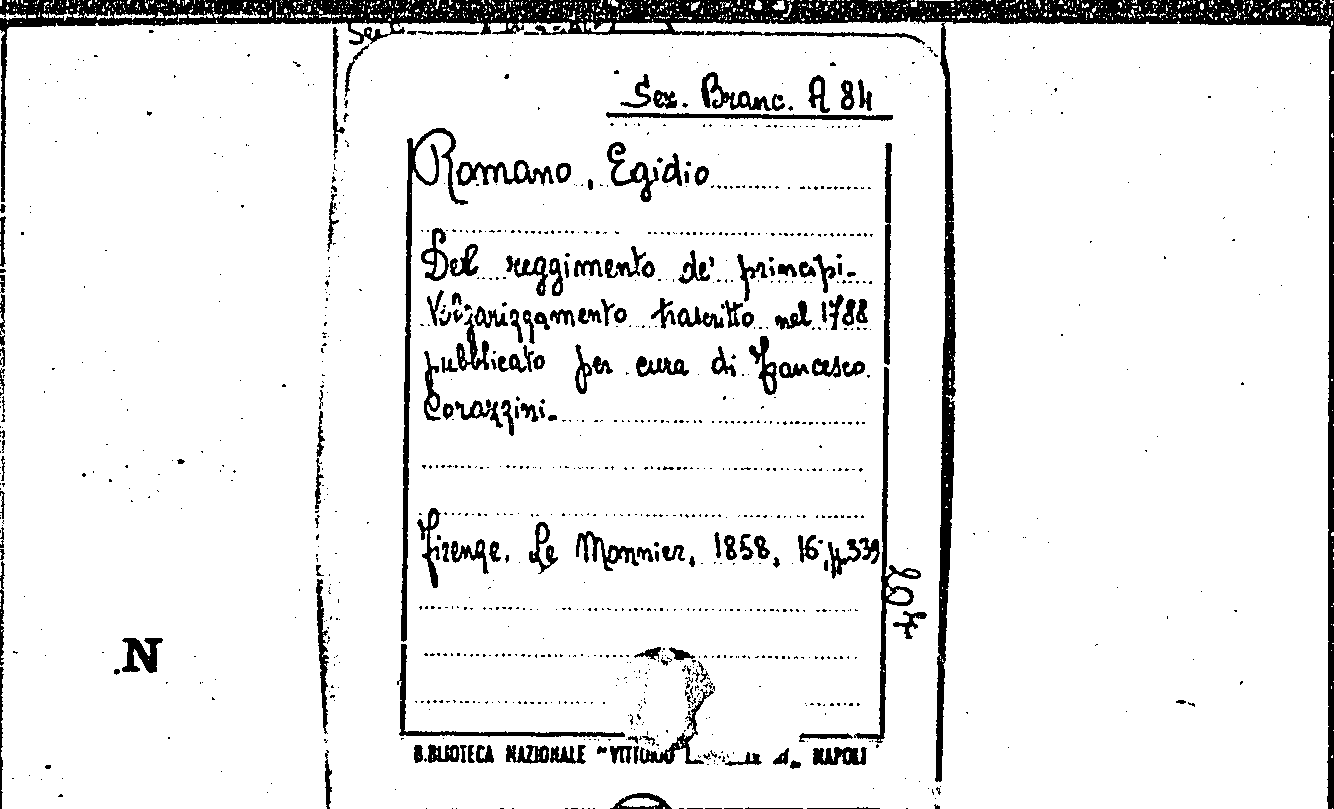 Sez. Branc. A 84
Romano, Egidio
Del reggimento de' principi.
Volgarizzamento trascritto nel 1788
pubblicato per cura di Francesco
Corazzini.
Firenze, Le Monnier, 1858, 16°, pp. 339
N
BIBLIOTECA NAZIONALE "VITTORIO NAPOLI